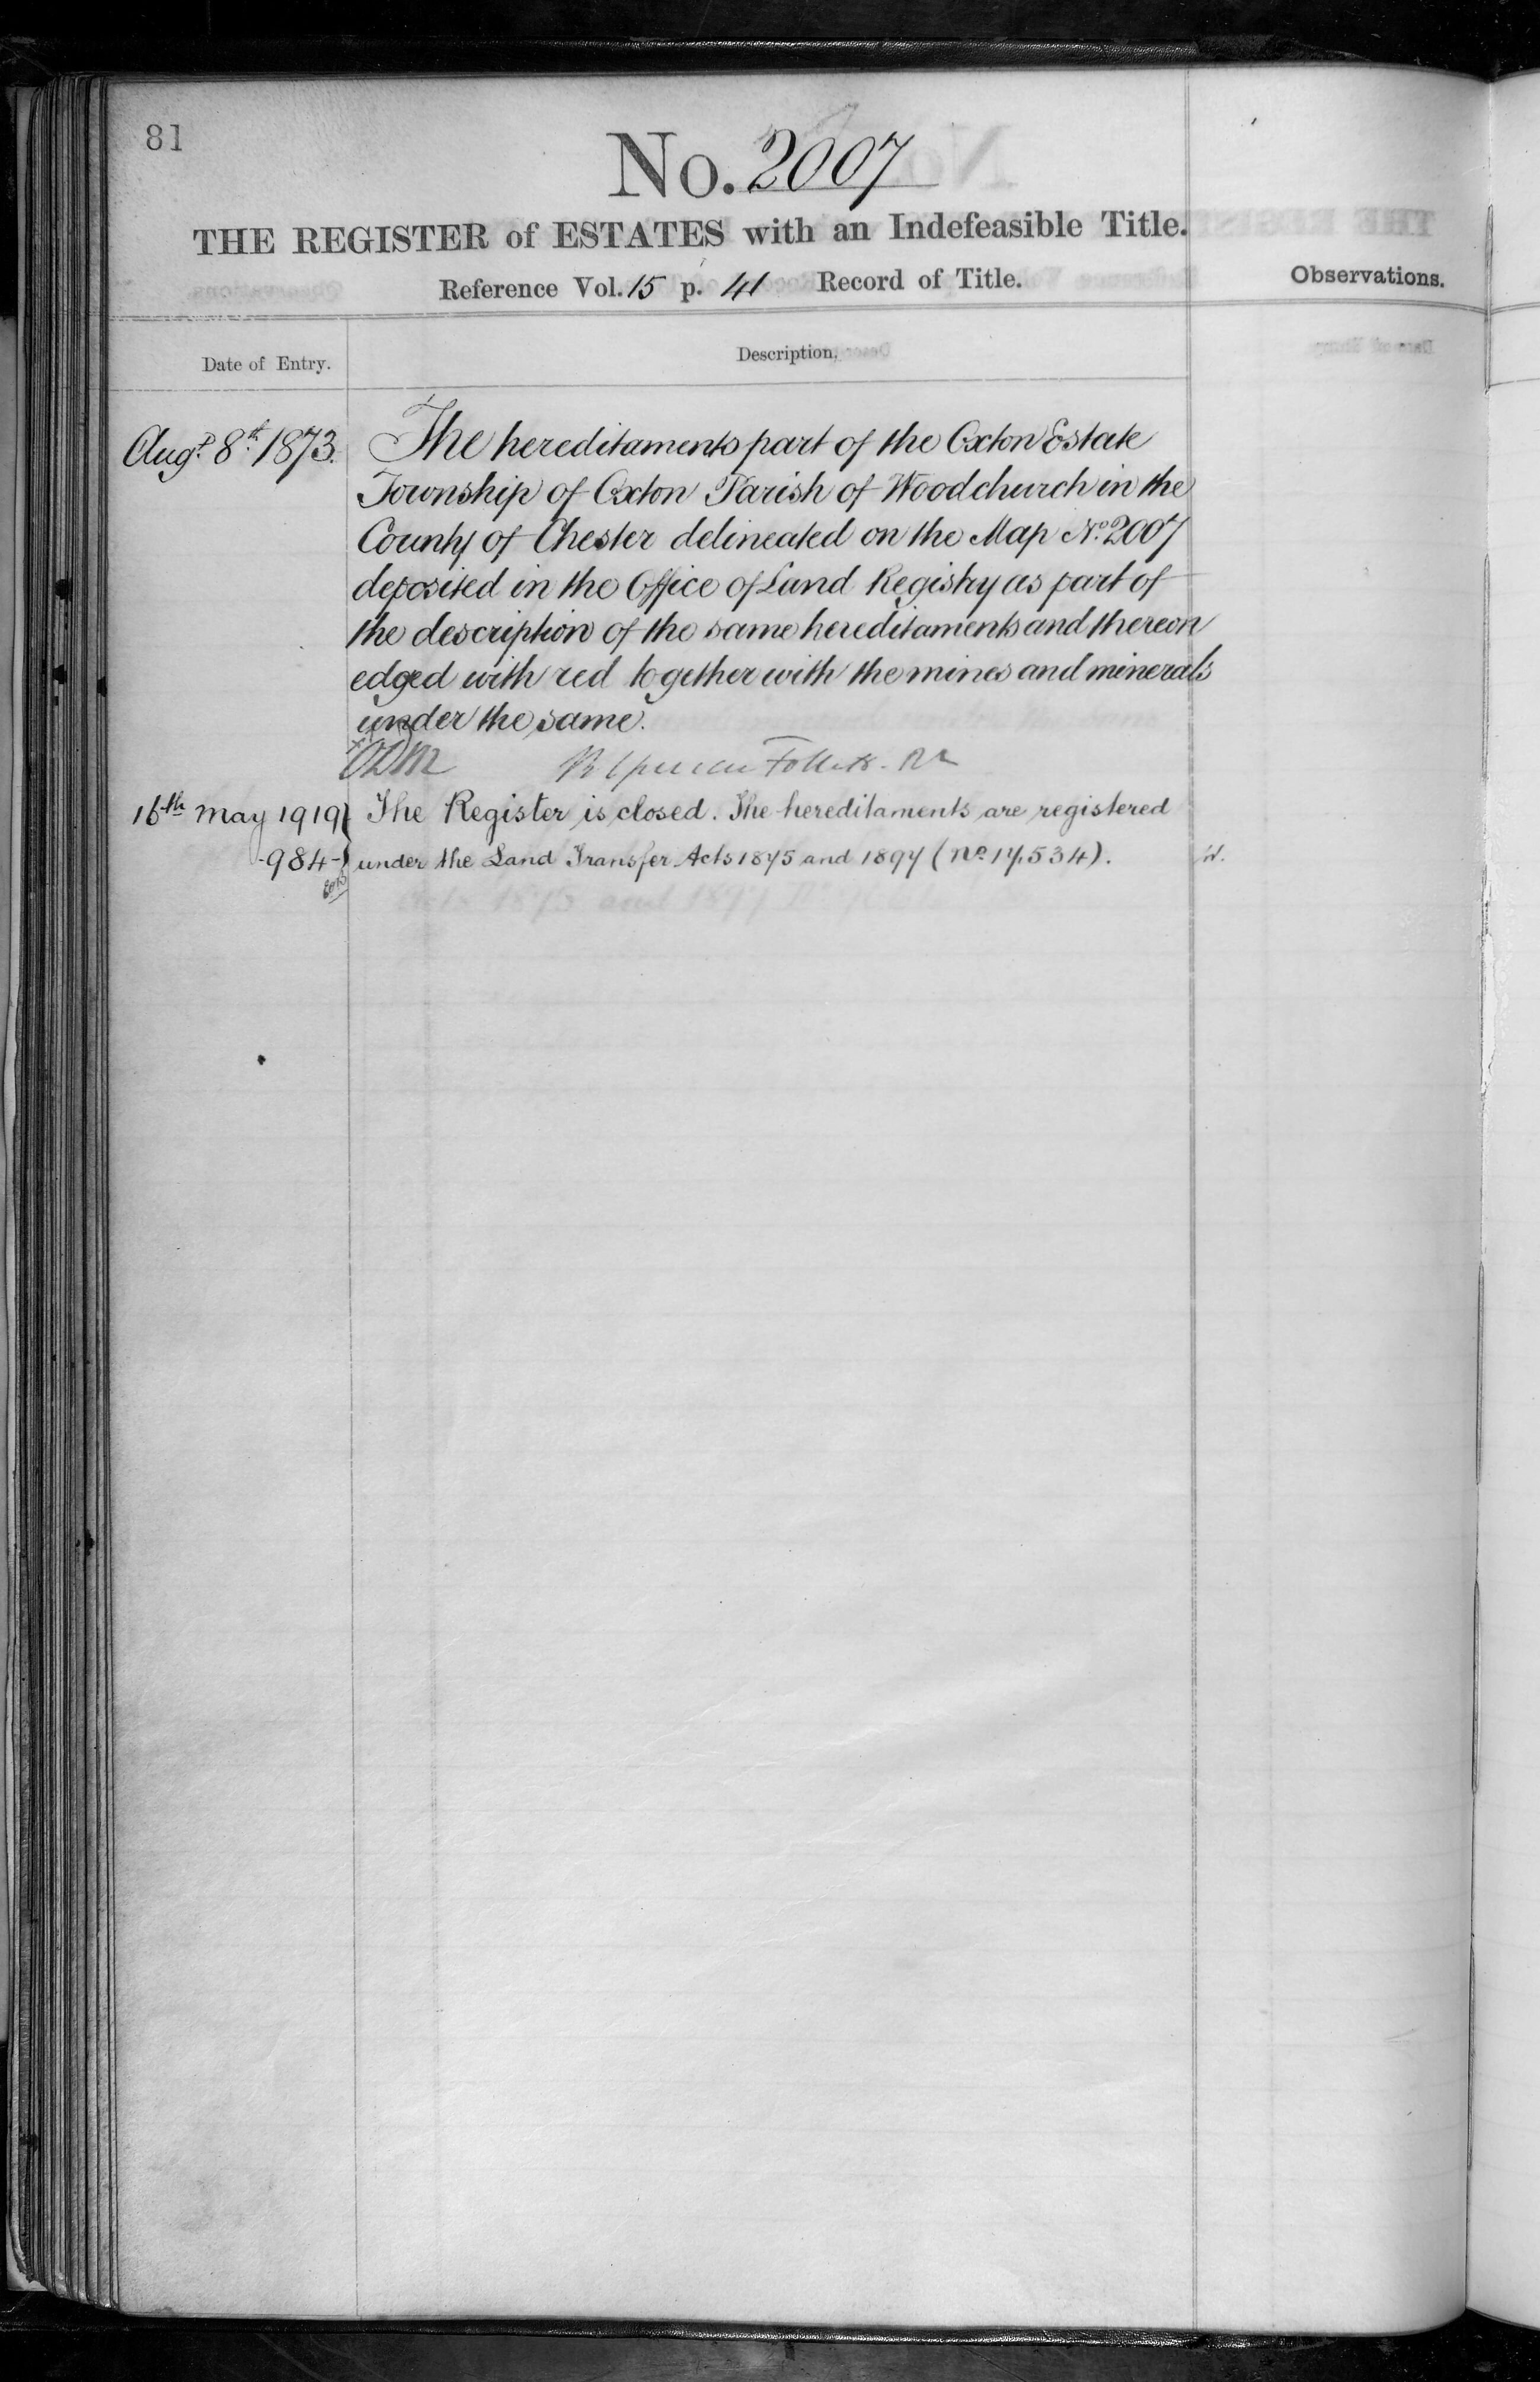 81
No. 2007
THE REGISTER of ESTATES with an Indefeasible Title.
Reference Vol. 15 p. 41 Record of Title.
Observations.
Date of Entry.
Description.
Augt. 8th 1873. The hereditaments part of the Oxton Estate
Township of Oxton Parish of Woodchurch in the
County of Chester delineated on the Map No. 2007
deposited in the Office of Land Registry as part of
the description of the same hereditaments and thereon
edged with red together with the mines and minerals
under the same.
16th May 1919 The Register is closed. The hereditaments are registered
-984- under the Land Transfer Acts 1875 and 1897 (No. 17,534).